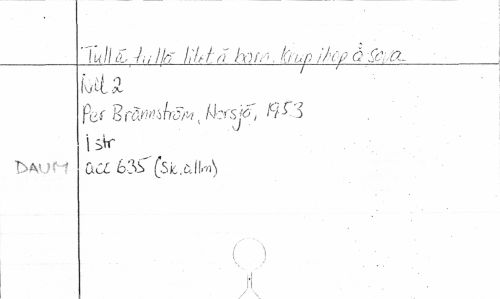 Tullã, tullã litet ã barn, krup ihop å sova
Nil 2
Per Brännström, Norsjö, 1953
1 str
DAUM acc 635 (Sk, allm)